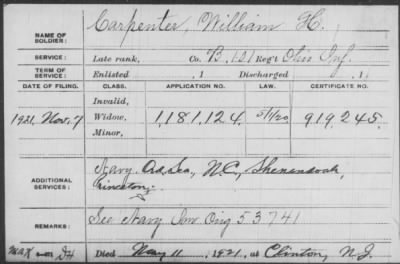 Carpenter, William H.
NAME OF
SOLDIER:
SERVICE: Late rank, Co. B, 151 Reg't Ohio Inf.
TERM OF
SERVICE: Enlisted , 1 Discharged , 1
DATE OF FILING. CLASS. APPLICATION NO. LAW. CERTIFICATE NO.
Invalid,
1921, Nov. 7 Widow, 1,181,124. 5/1/20 919,245.
Minor,
Navy. Ord. Sea., N.C., Shenandoah,
ADDITIONAL
SERVICES: Princeton,
REMARKS: See Navy Inv Orig 53741
Died May 11, 1921, at Clinton, N.J.